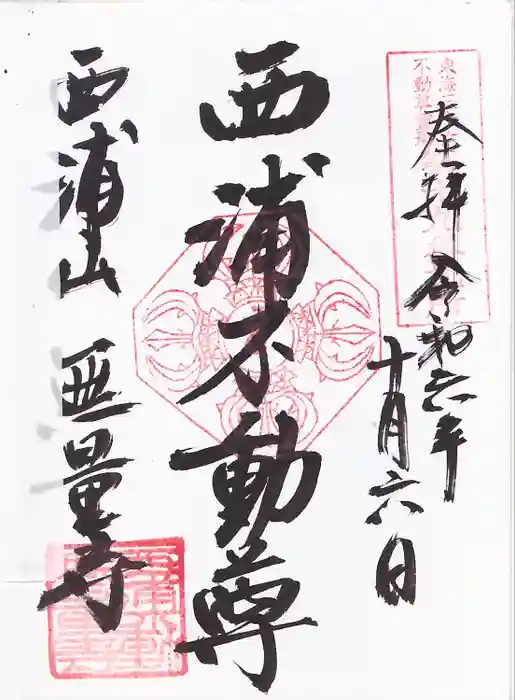 奉拝 令和六年
十月六日
西浦不動尊
西浦山 無量寺
東海
不動尊